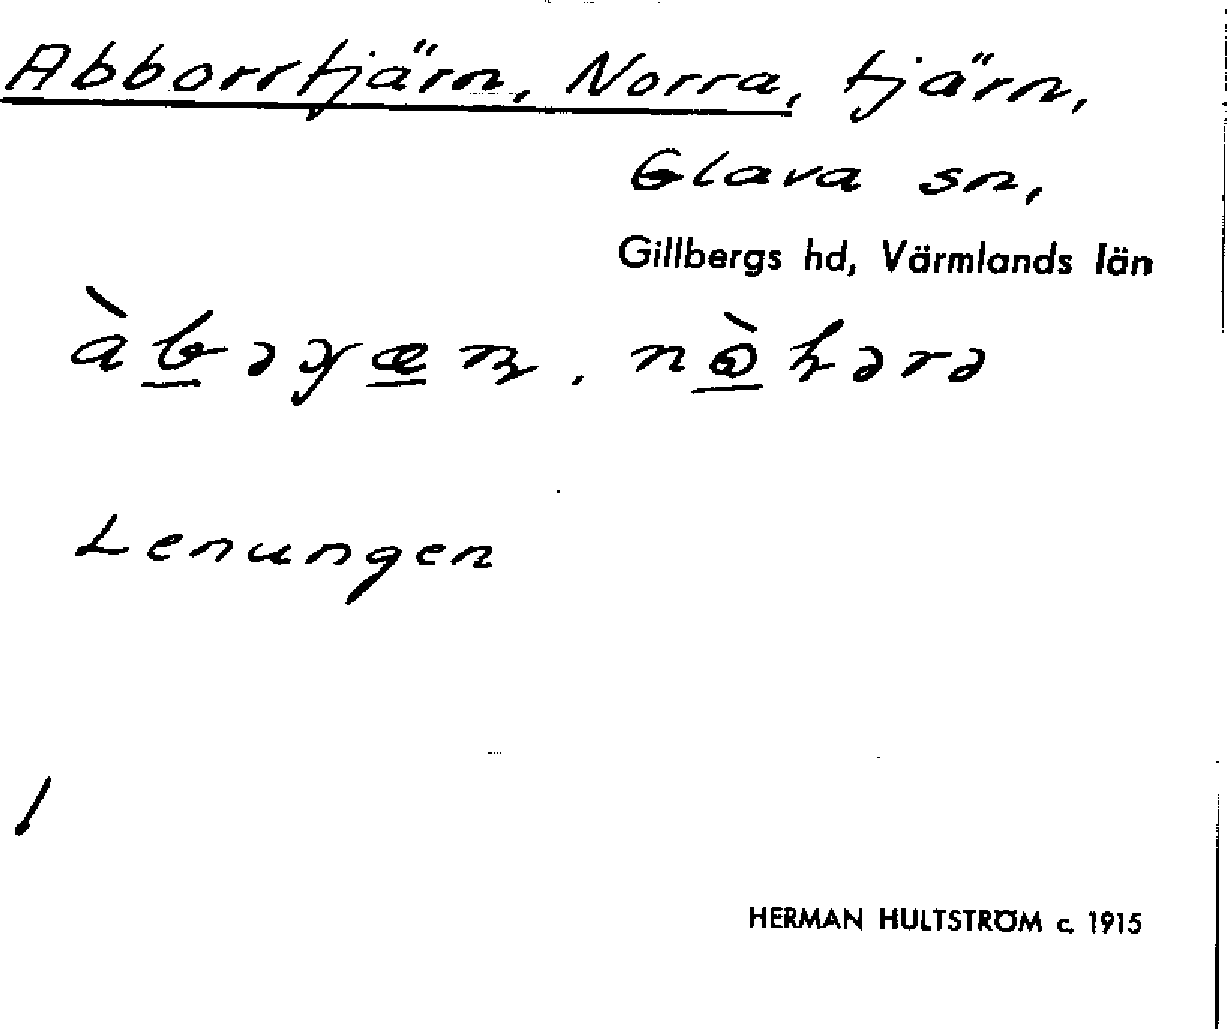 Abborrtjärn, Norra, tjärn,
Glava sn,
Gillbergs hd, Värmlands län
Lenungen
HERMAN HULTSTRÖM c. 1915